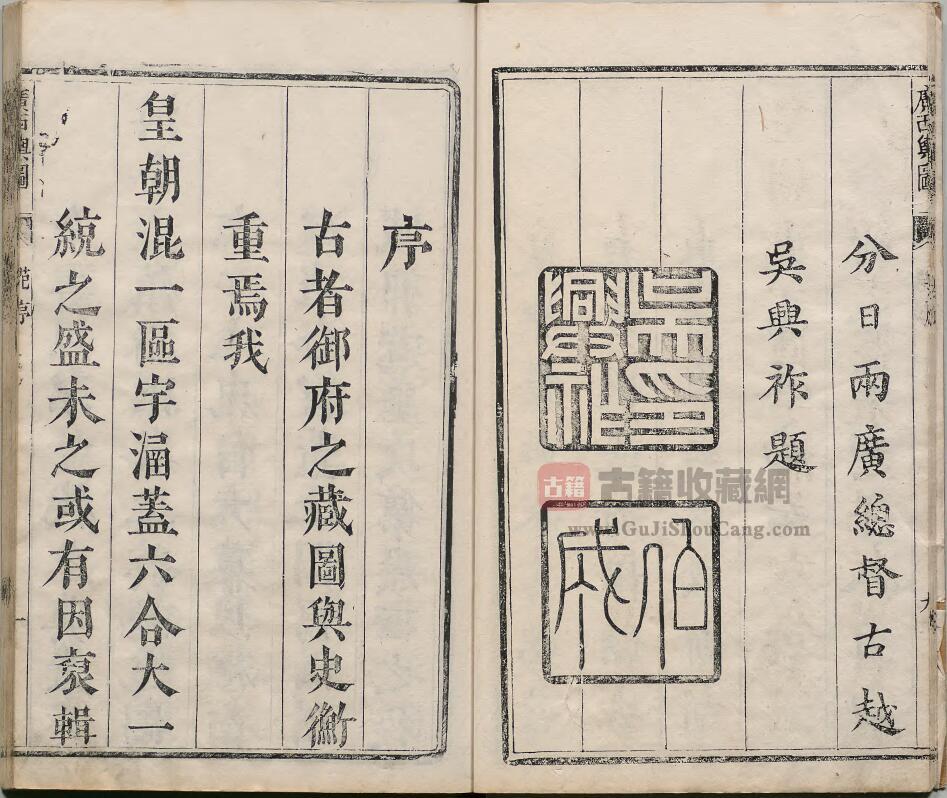 分日兩廣總督古越
吳興祚題
伯成
序
古者御府之藏圖與史衡
重焉我
皇朝混一區宇涵蓋六合大一
統之盛未之或有因裒輯
廣古輿圖
古籍
古籍收藏網
www.GuJiShouCang.com